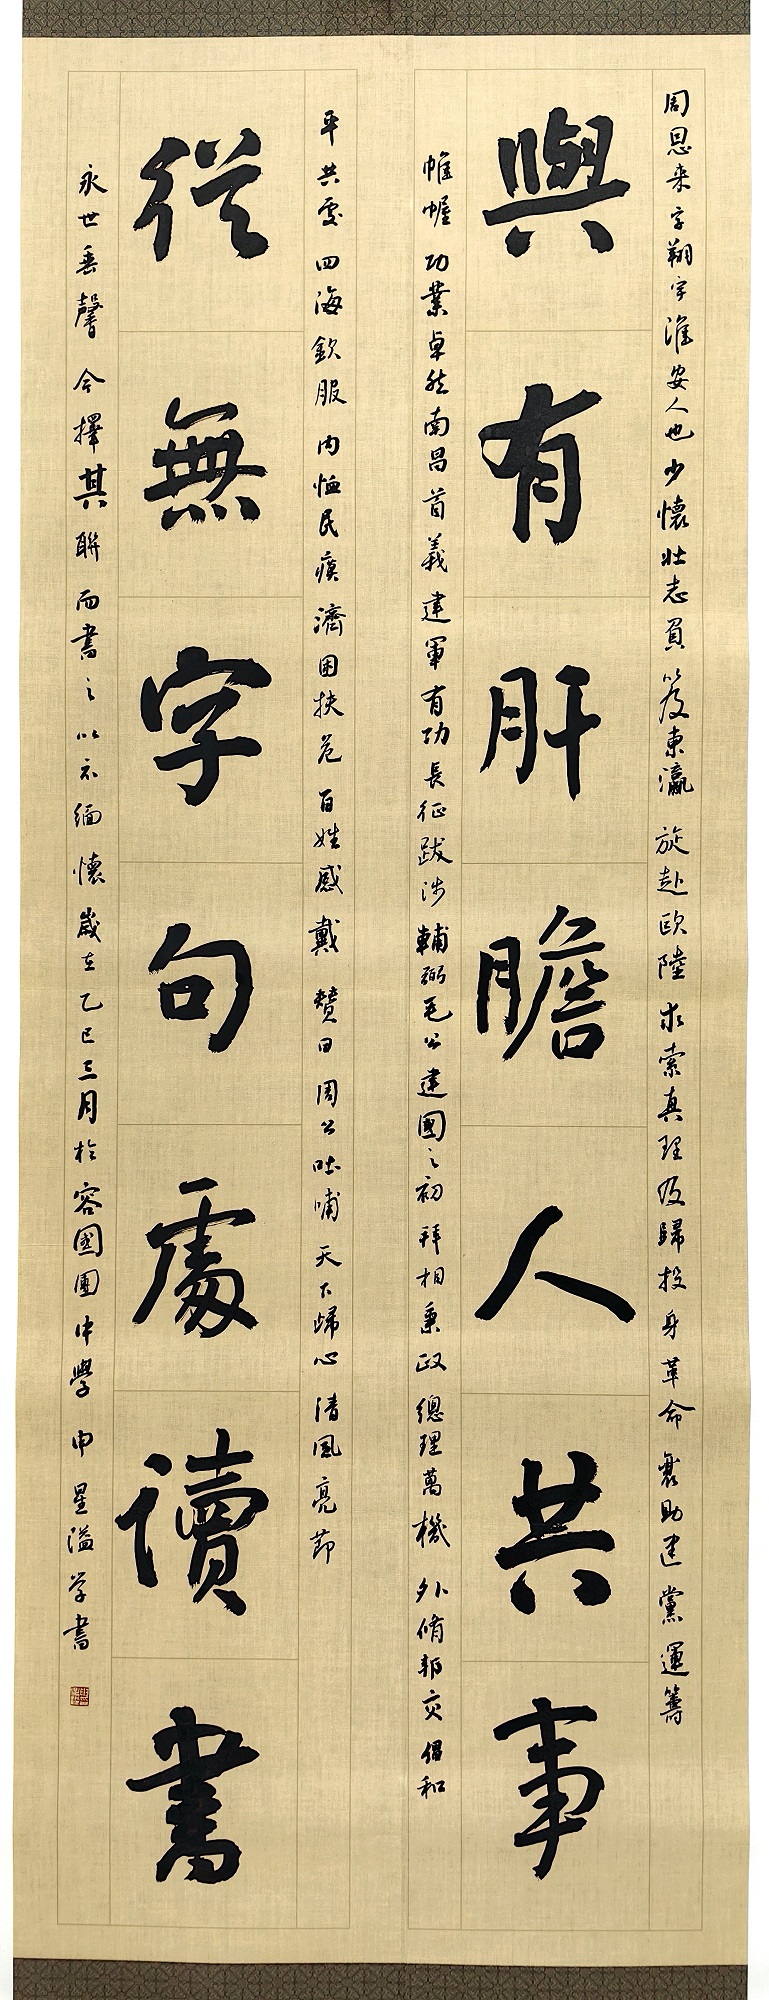 與有肝膽人共事
從無字句處讀書
周恩来字翔宇淮安人也少懷壯志負笈東瀛旋赴欧陸求索真理及歸投身革命襄助建黨運籌
帷幄功業卓然南昌首義建軍有功長征跋涉輔弼毛公建國之初拜相秉政總理萬機外脩邦交倡和
平共處四海欽服内恤民瘼濟困扶危百姓感戴贊曰周公吐哺天下歸心清風亮節
永世垂馨今擇其聯而書之以示緬懷歲在乙巳三月於容國團中學申星溢学書